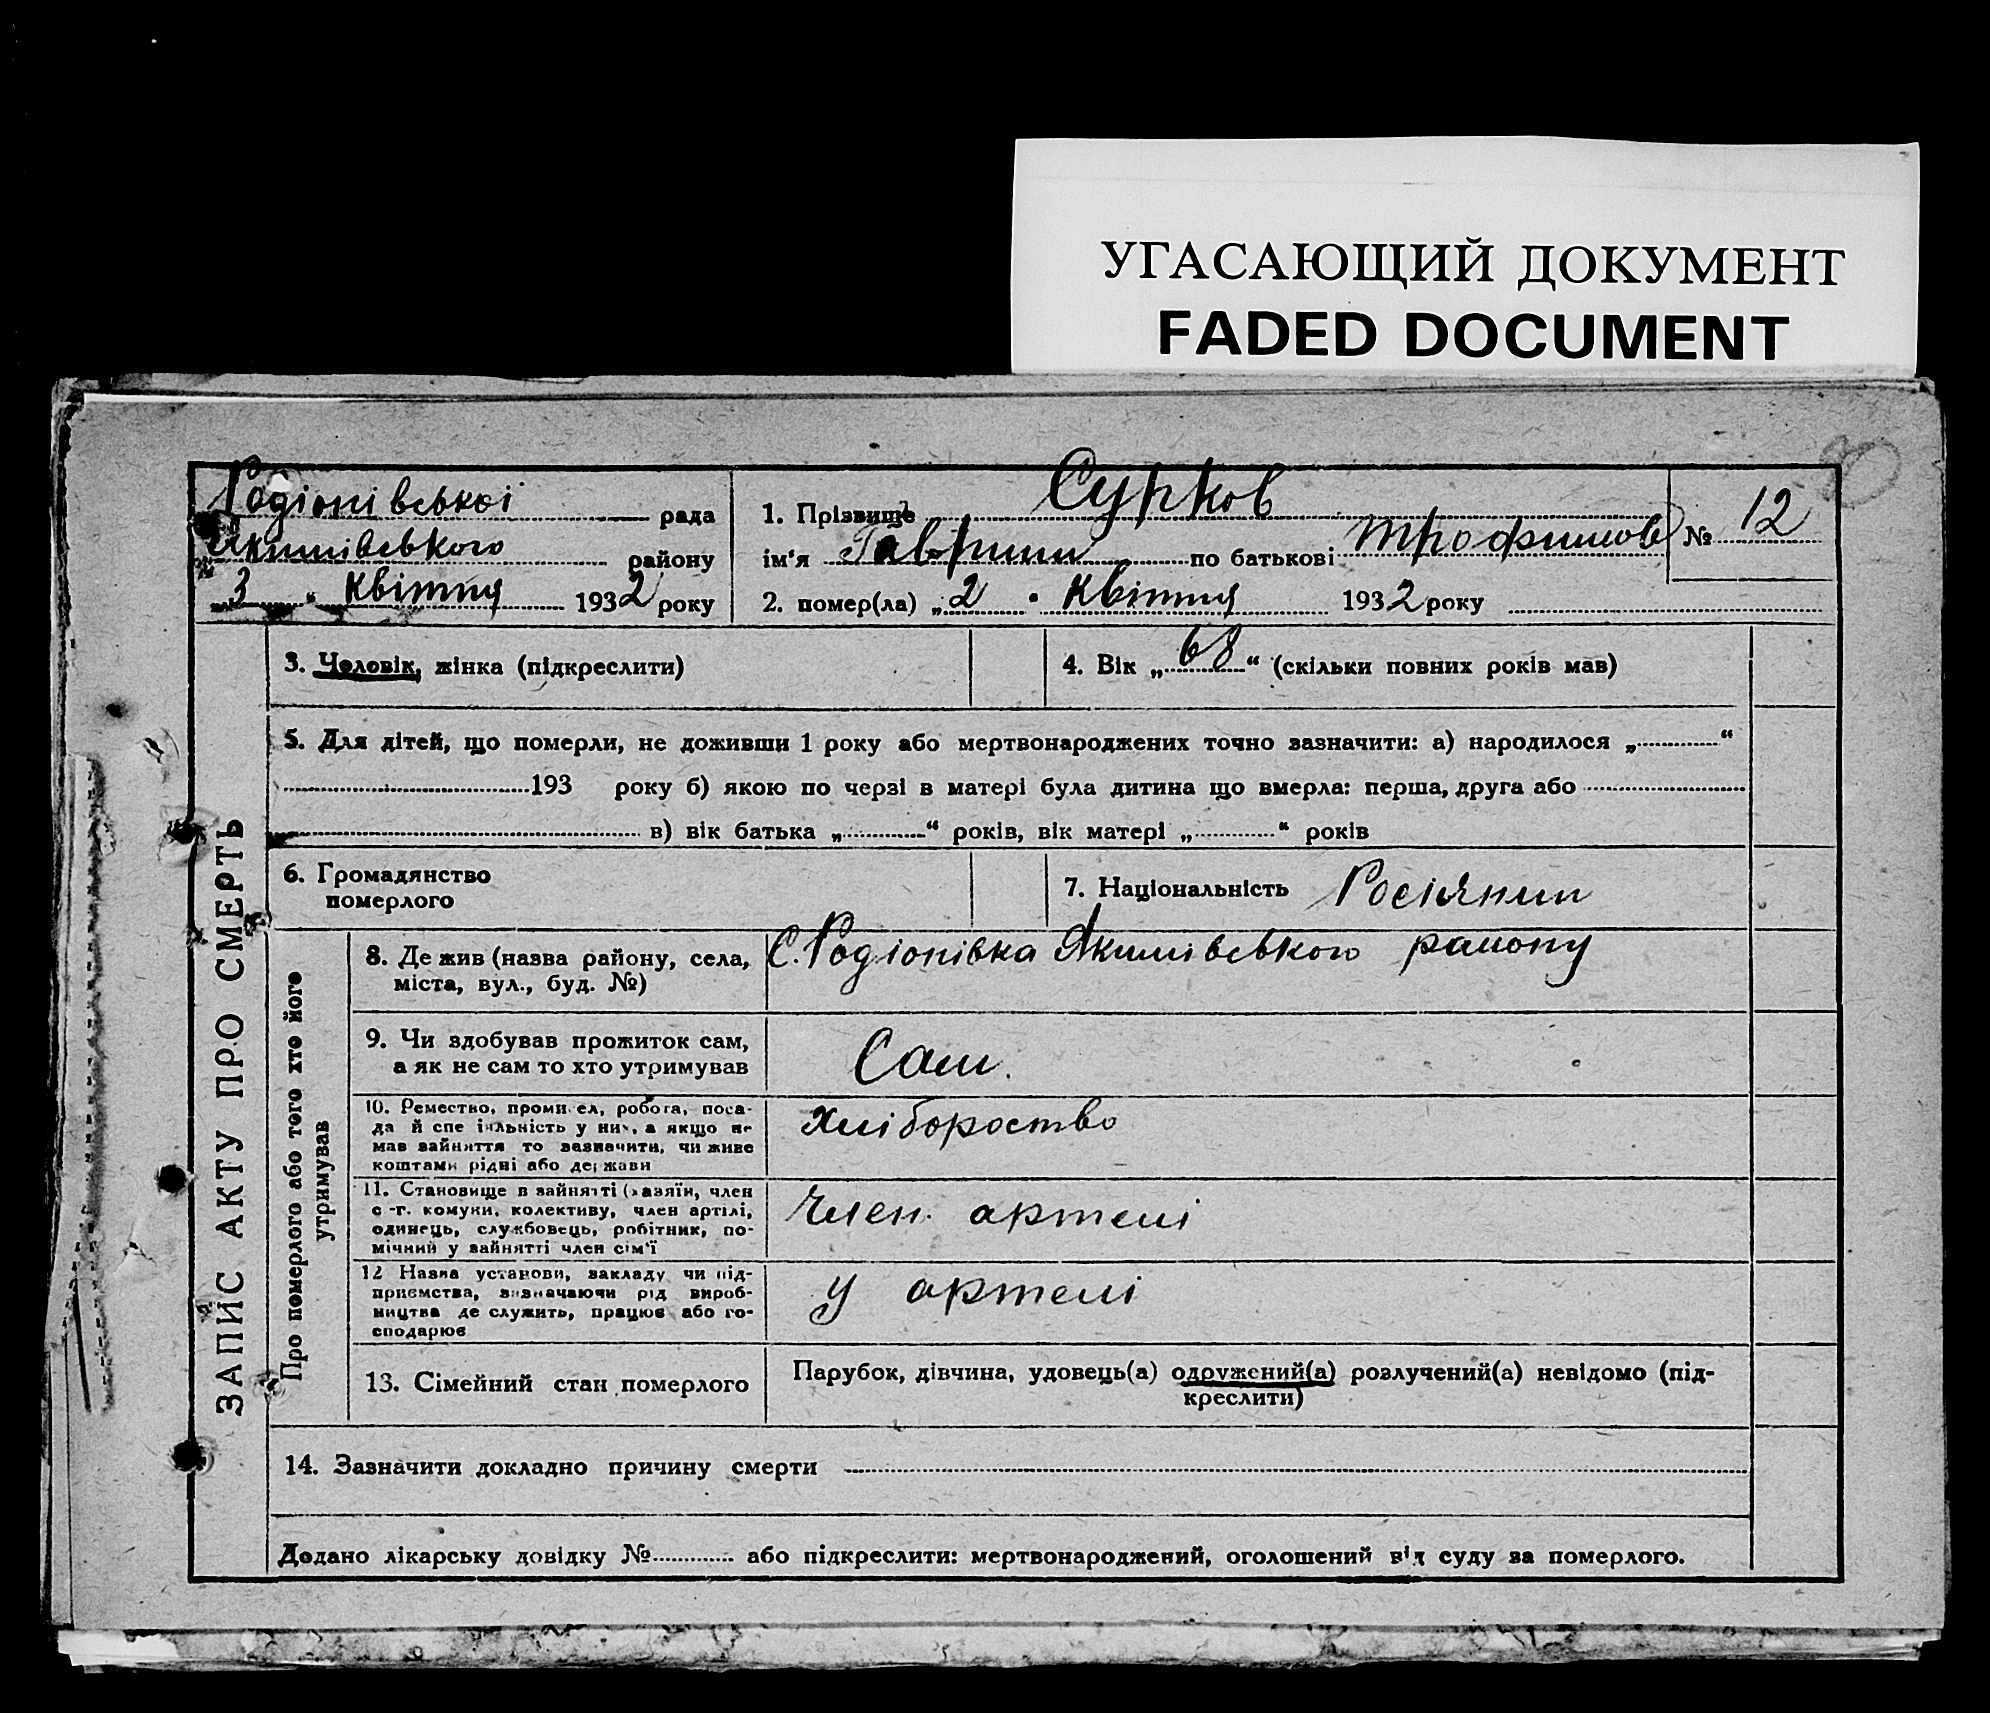 УГАСАЮЩИЙ ДОКУМЕНТ
FADED DOCUMENT
Родіонівської рада
Якимівського району
3 " квітня 1932 року
1. Прізвище Сурков
ім'я Гаврило по батькові Трофимов
№ 12
2. помер(ла) „ 2 " Квітня 1932 року
ЗАПИС АКТУ ПРО СМЕРТЬ
3. Чоловік, жінка (підкреслити)
4. Вік „ 68 “ (скільки повних років мав)
5. Для дітей, що померли, не доживши 1 року або мертвонароджених точно зазначити: а) народилося „ “
193 року б) якою по черзі в матері була дитина що вмерла: перша, друга або
в) вік батька „ “ років, вік матері „ “ років
6. Громадянство
померлого
7. Національність Росіянин
Про померлого або того хто його
утримував
8. Де жив (назва району, села,
міста, вул., буд. №)
С. Родіонівка Якимівського району
9. Чи здобував прожиток сам,
а як не сам то хто утримував
Сам.
10. Ремество, промисел, робота, поса-
да й спеціяльність у них, а якщо не
мав зайняття то зазначити, чи живе
коштами рідні або держави
Хліборотство
11. Становище в зайнятті (хазяїн, член
с.-г. комуни, колективу, член артілі,
одинець, службовець, робітник, по-
мічний у зайнятті член сім'ї
Член. артелі
12 Назва установи, закладу чи під-
приємства, визначаючи рід вироб-
ництва де служить, працює або го-
сподарює
У артелі
13. Сімейний стан померлого
Парубок, дівчина, удовець(а) одружений(а) розлучений(а) невідомо (під-
креслити)
14. Зазначити докладно причину смерти
Додано лікарську довідку № або підкреслити: мертвонароджений, оголошений від суду за померлого.